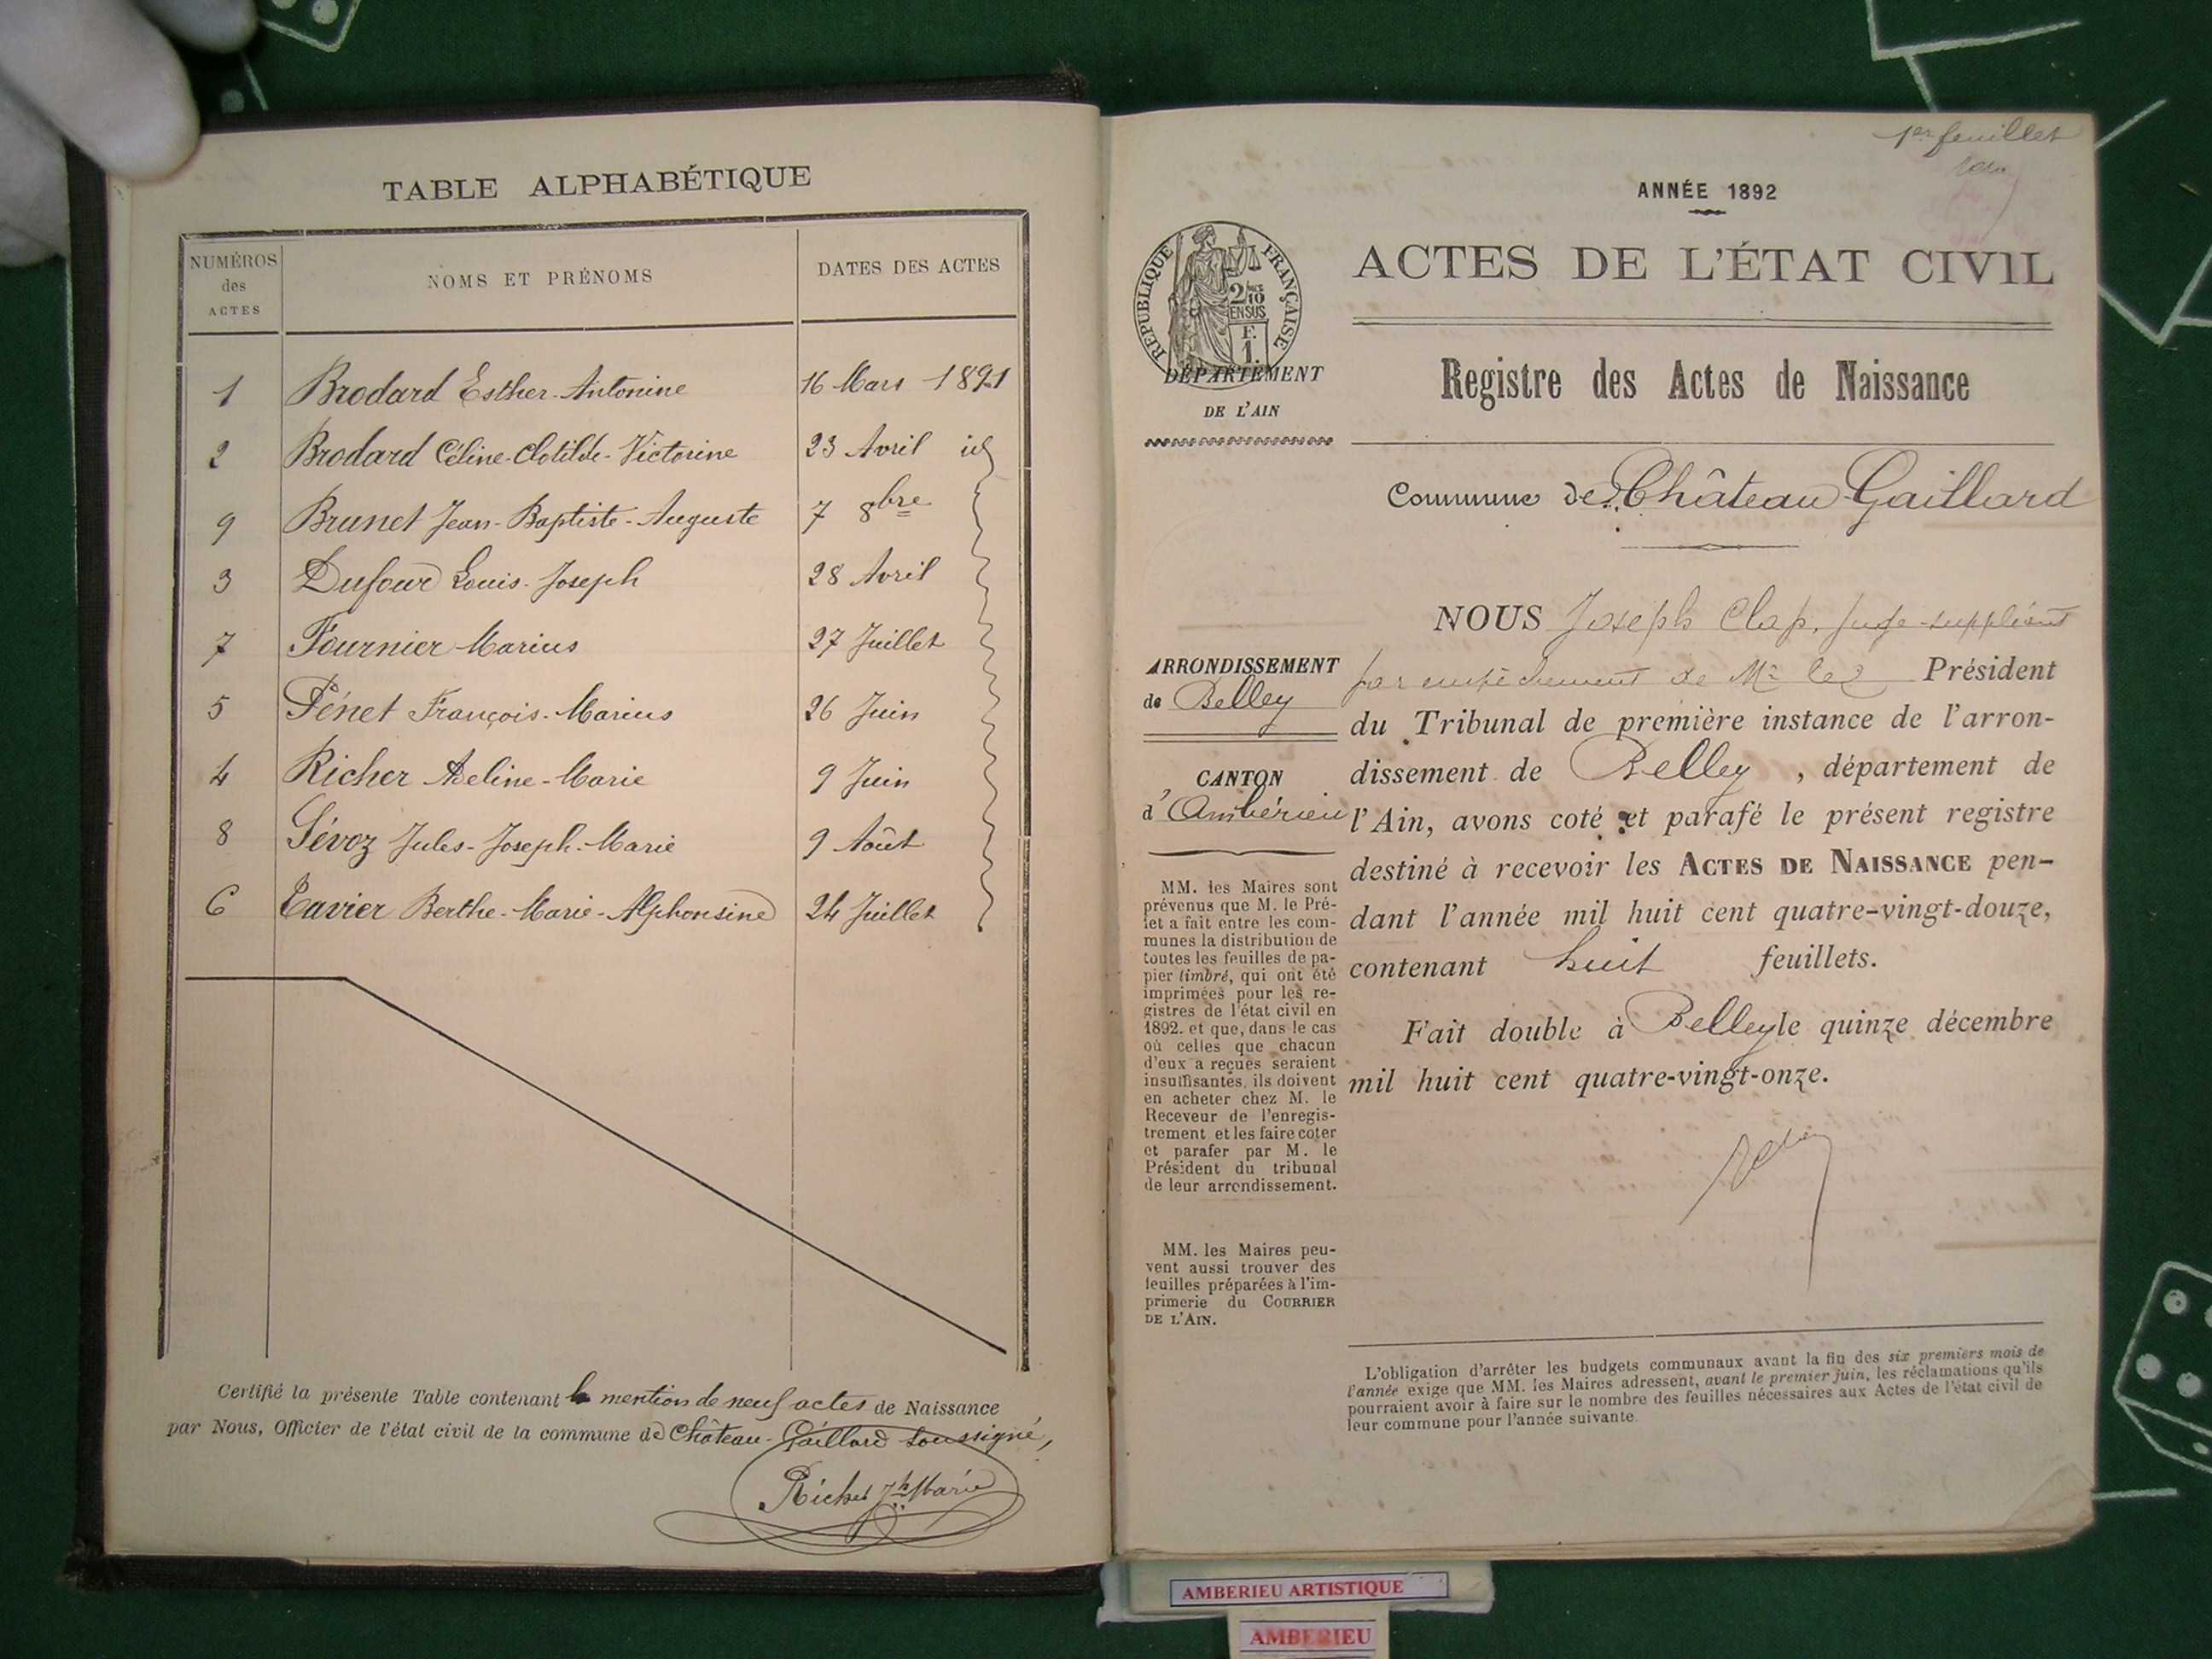 TABLE ALPHABÉTIQUE
NUMÉROS des ACTES
NOMS ET PRÉNOMS
DATES DES ACTES
1 Brodard Esther-Antonine 16 Mars 1891
2 Brodard Céline-Clotilde-Victorine 23 Avril id
9 Brunet Jean-Baptiste-Auguste 7 8bre
3 Dufour Louis-Joseph 28 Avril
7 Fournier Marius 27 Juillet
5 Pénet François-Marius 26 Juin
4 Richer Adeline-Marie 9 Juin
8 Sévoz Jules-Joseph-Marie 9 Août
6 Tavier Berthe-Marie-Alphonsine 24 Juillet
Certifié la présente Table contenant la mention de neuf actes de Naissance
par Nous, Officier de l'état civil de la commune de Château-Gaillard soussigné,
Richer Jh Marie
1er feuillet
ANNÉE 1892
RÉPUBLIQUE FRANÇAISE
2/10
EN SUS
F.
1.
ACTES DE L'ÉTAT CIVIL
DÉPARTEMENT
DE L'AIN
Registre des Actes de Naissance
Commune de Château Gaillard
ARRONDISSEMENT
de Belley
CANTON
d'Ambérieu
MM. les Maires sont
prévenus que M. le Pré-
fet a fait entre les com-
munes la distribution de
toutes les feuilles de pa-
pier timbré, qui ont été
imprimées pour les re-
gistres de l'état civil en
1892. et que, dans le cas
où celles que chacun
d'eux a reçues seraient
insuffisantes, ils doivent
en acheter chez M. le
Receveur de l'enregis-
trement et les faire coter
et parafer par M. le
Président du tribunal
de leur arrondissement.
MM. les Maires peu-
vent aussi trouver des
feuilles préparées à l'im-
primerie du COURRIER
DE L'AIN.
NOUS Joseph Clap, Juge suppléant
par empêchement de Mr le Président
du Tribunal de première instance de l'arron-
dissement de Belley, département de
l'Ain, avons coté et parafé le présent registre
destiné à recevoir les ACTES DE NAISSANCE pen-
dant l'année mil huit cent quatre-vingt-douze,
contenant huit feuillets.
Fait double à Belley le quinze décembre
mil huit cent quatre-vingt-onze.
L'obligation d'arrêter les budgets communaux avant la fin des six premiers mois de
l'année exige que MM. les Maires adressent, avant le premier juin, les réclamations qu'ils
pourraient avoir à faire sur le nombre des feuilles nécessaires aux Actes de l'état civil de
leur commune pour l'année suivante.
AMBERIEU ARTISTIQUE
AMBERIEU